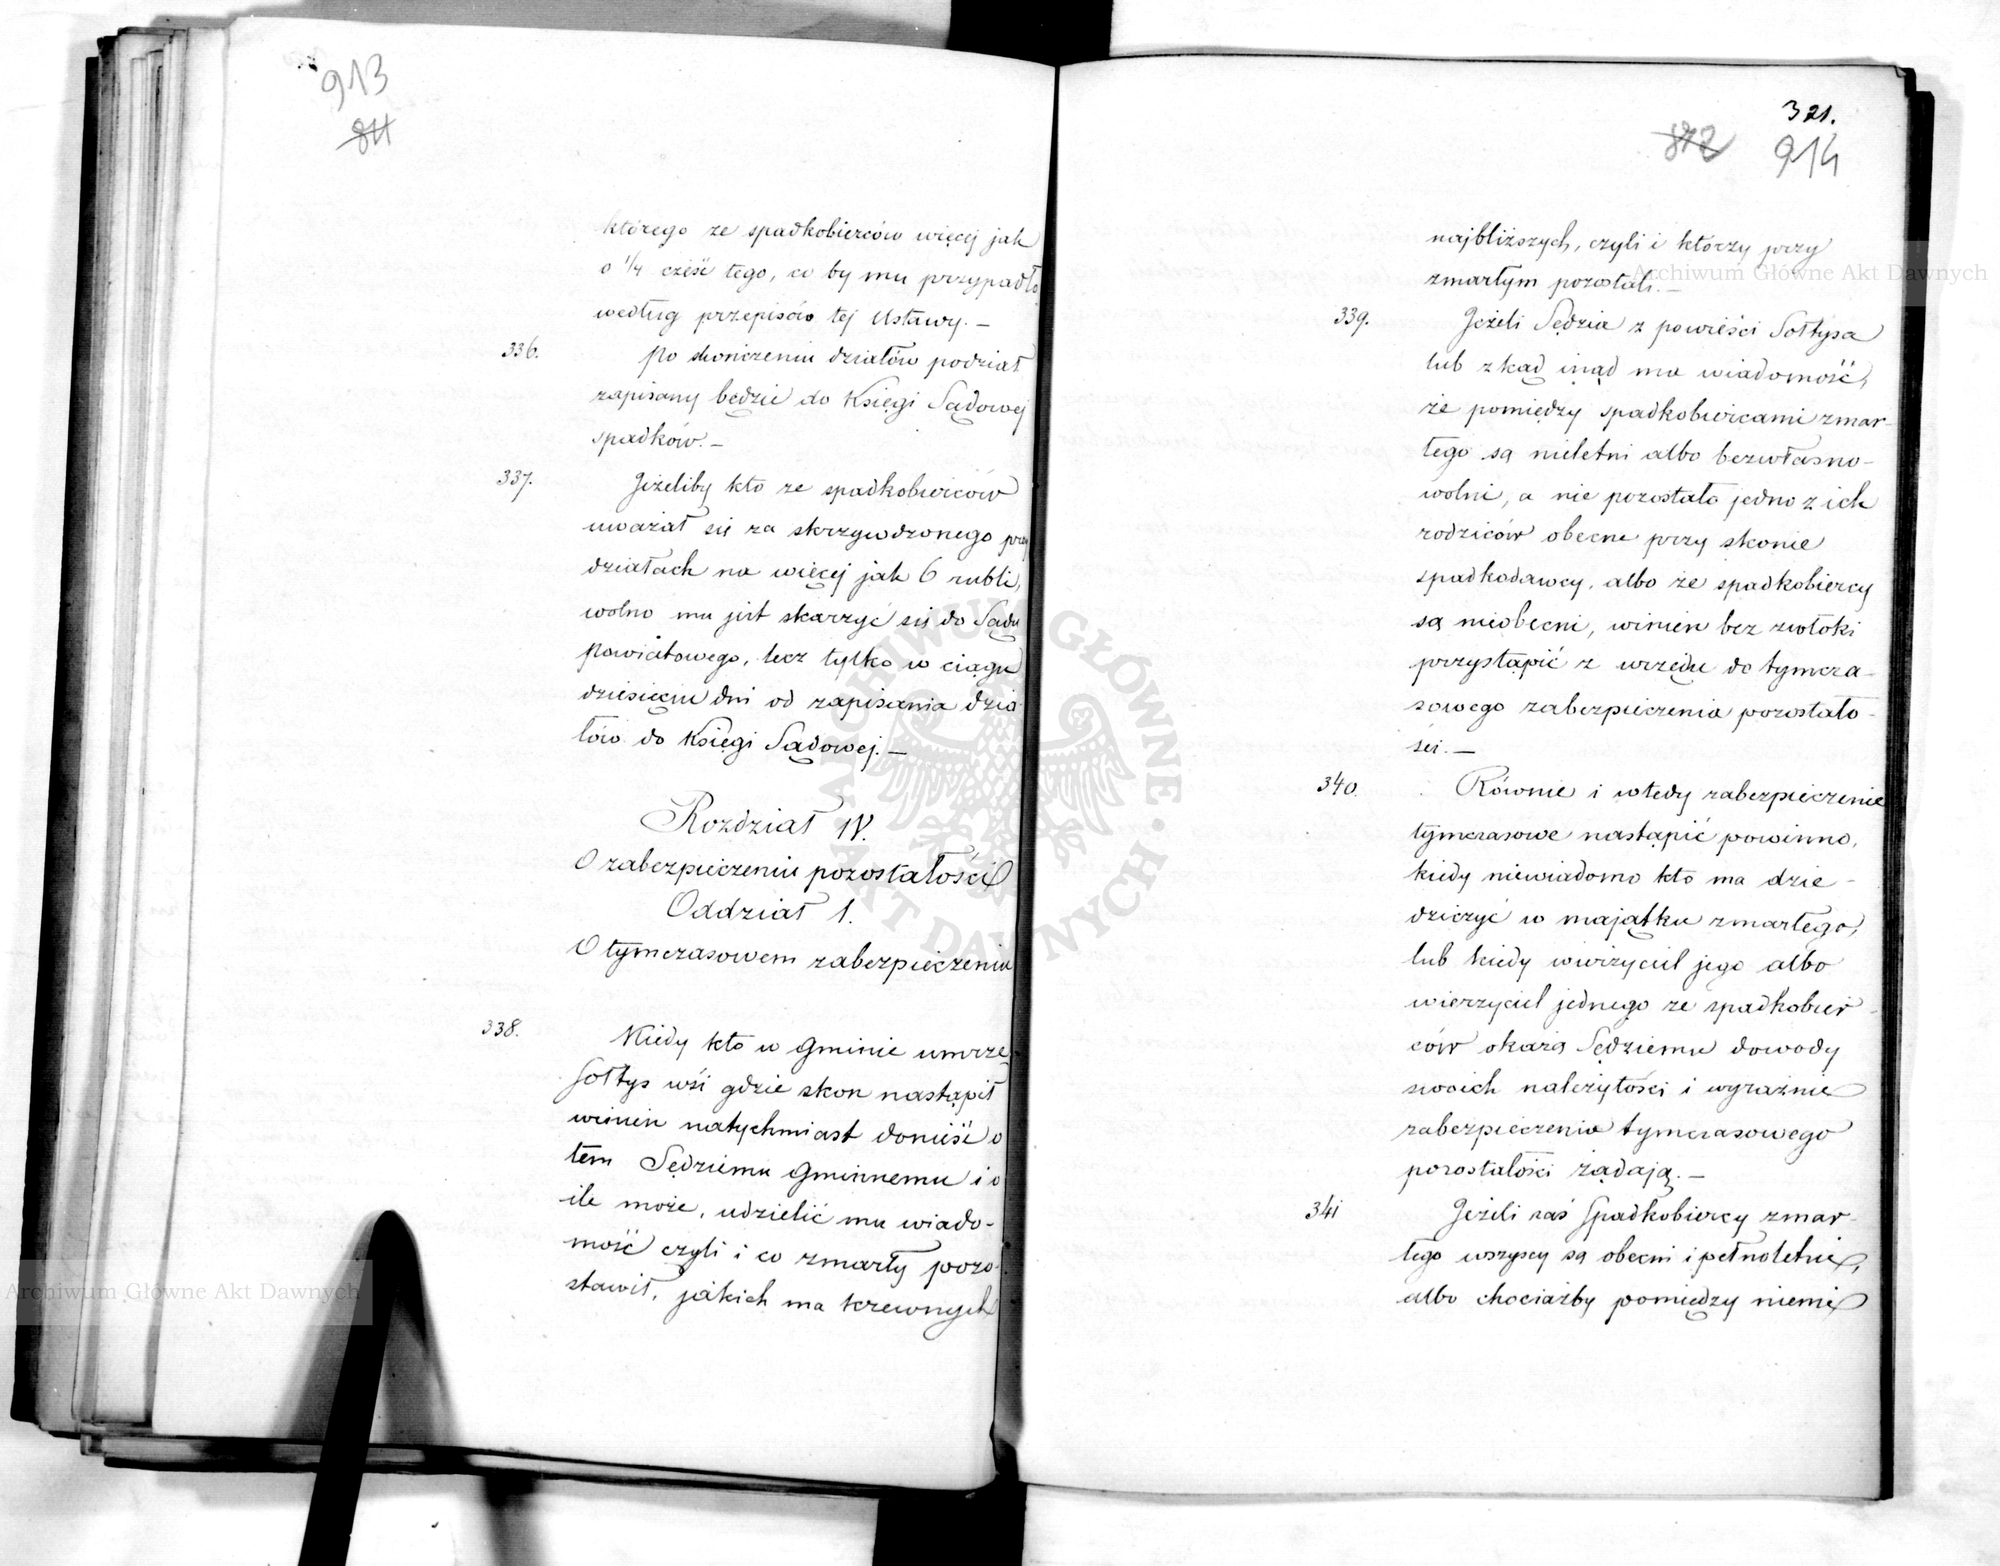 913
811
którego ze spadkobierców więcej jak
o 1/4 cześć tego, co by mu przypadło
według przepisów tej Ustawy. —
336. Po skończeniu działów podział
zapisany będzie do Księgi Sądowej
spadków. —
337. Jeżeliby kto ze spadkobierców
uważał się za skrzywdzonego przy
działach na więcej jak 6 rubli,
wolno mu jest skarżyć się do Sądu
Powiatowego, lecz tylko w ciągu
dziesięciu dni od zapisania dzia
łów do Księgi Sądowej. —
Rozdział IV.
O zabezpieczeniu pozostałości
Oddział 1.
O tymczasowem zabezpieczeniu
338. Kiedy kto w Gminie umrze
Sołtys wsi gdzie skon nastąpił
winien natychmiast donieść o
tem Sędziemu Gminnemu i o
ile może, udzielić mu wiado-
mość czyli i co zmarły pozo
stawił, jakich ma krewnych
321.
812
914
najbliższych, czyli i którzy przy
zmarłym pozostali. —
339. Jeżeli Sędzia z powieści Sołtysa
lub zkąd inąd ma wiadomość,
że pomiędzy spadkobiercami zmar-
łego są nieletni albo bezwłasno-
wolni, a nie pozostało jedno z ich
rodziców obecne przy skonie
spadkodawcy, albo że spadkobiercy
są nieobecni, winien bez zwłoki
przystąpić z urzędu do tymcza-
sowego zabezpieczenia pozostało-
ści. —
340. Równie i wtedy zabezpieczenie
tymczasowe nastąpić powinno,
kiedy niewiadomo kto ma dzie-
dziczyć w majątku zmarłego,
lub kiedy wierzyciel jego albo
wierzyciel jednego ze spadkobier-
ców okażą Sędziemu dowody
swoich należytości i wyraźnie
zabezpieczenia tymczasowego
pozostałości żądają. —
341 Jeżeli zaś Spadkobiercy zmar-
łego wszyscy są obecni i pełnoletnie,
albo chociażby pomiędzy niemi
Archiwum Główne Akt Dawnych
Archiwum Główne Akt Dawnych
ARCHIWUM GŁÓWNE AKT DAWNYCH